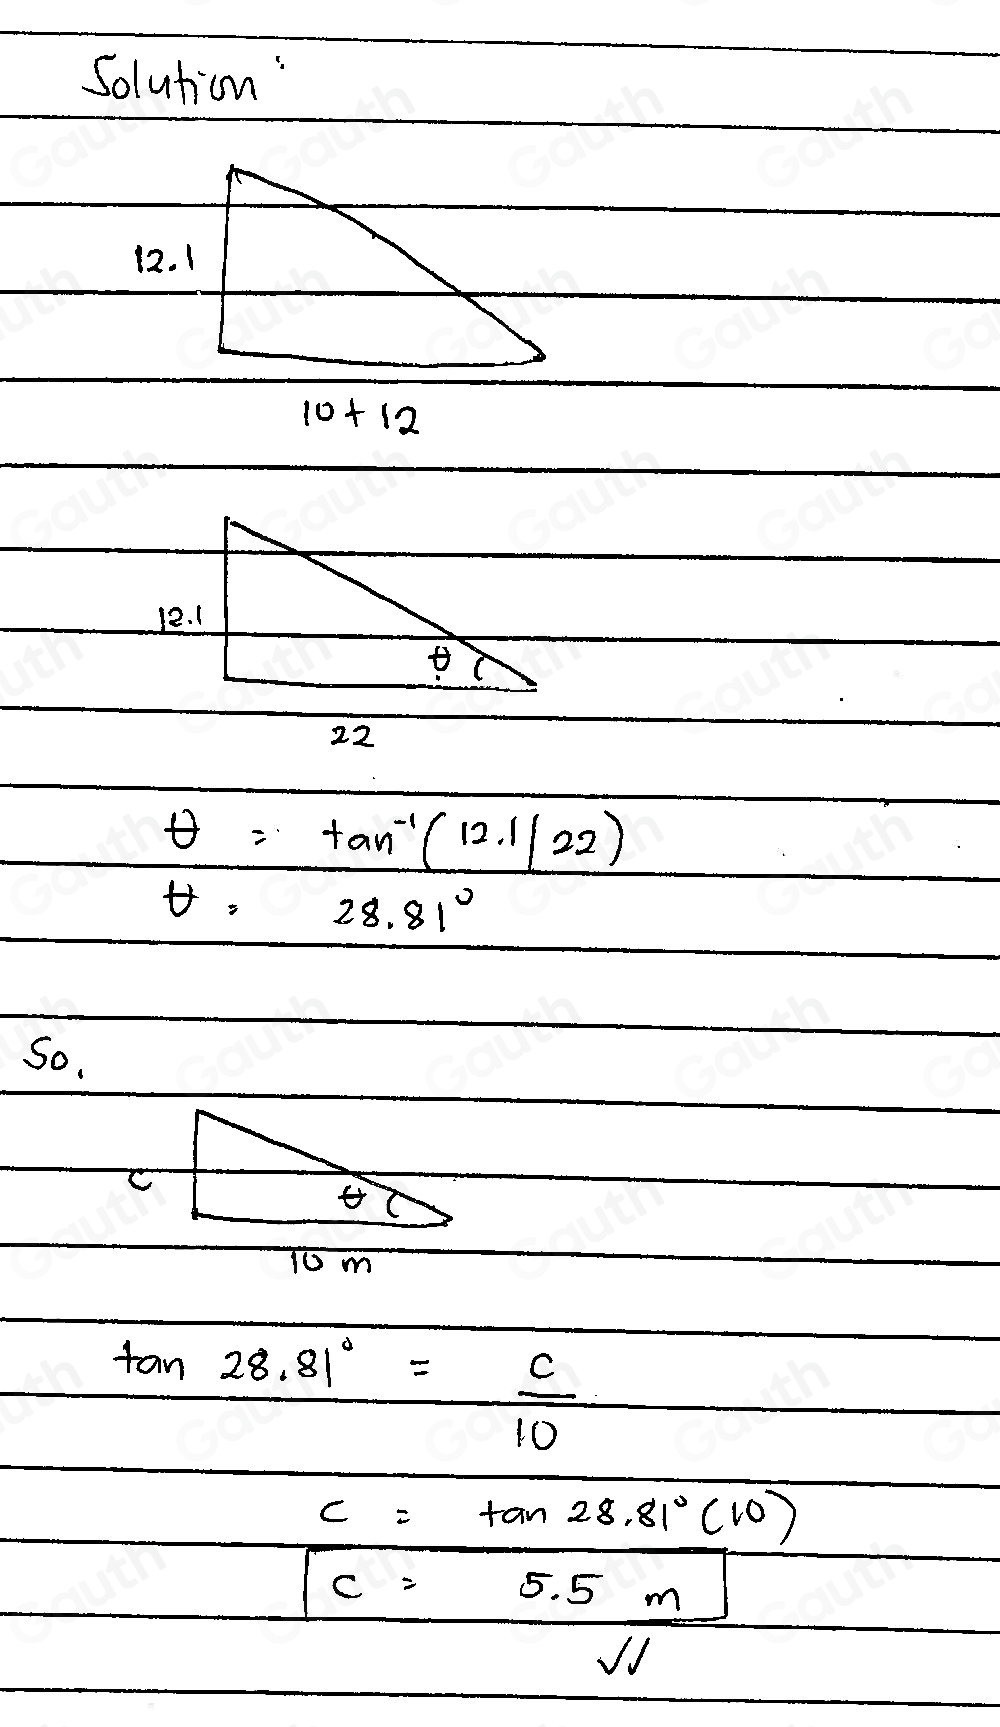 Solution:
12.1
10 + 12
12.1
θ
22
θ = tan⁻¹(12.1/22)
θ = 28.81°
So,
c
θ
10 m
tan 28.81° = c/10
c = tan 28.81° (10)
c = 5.5 m